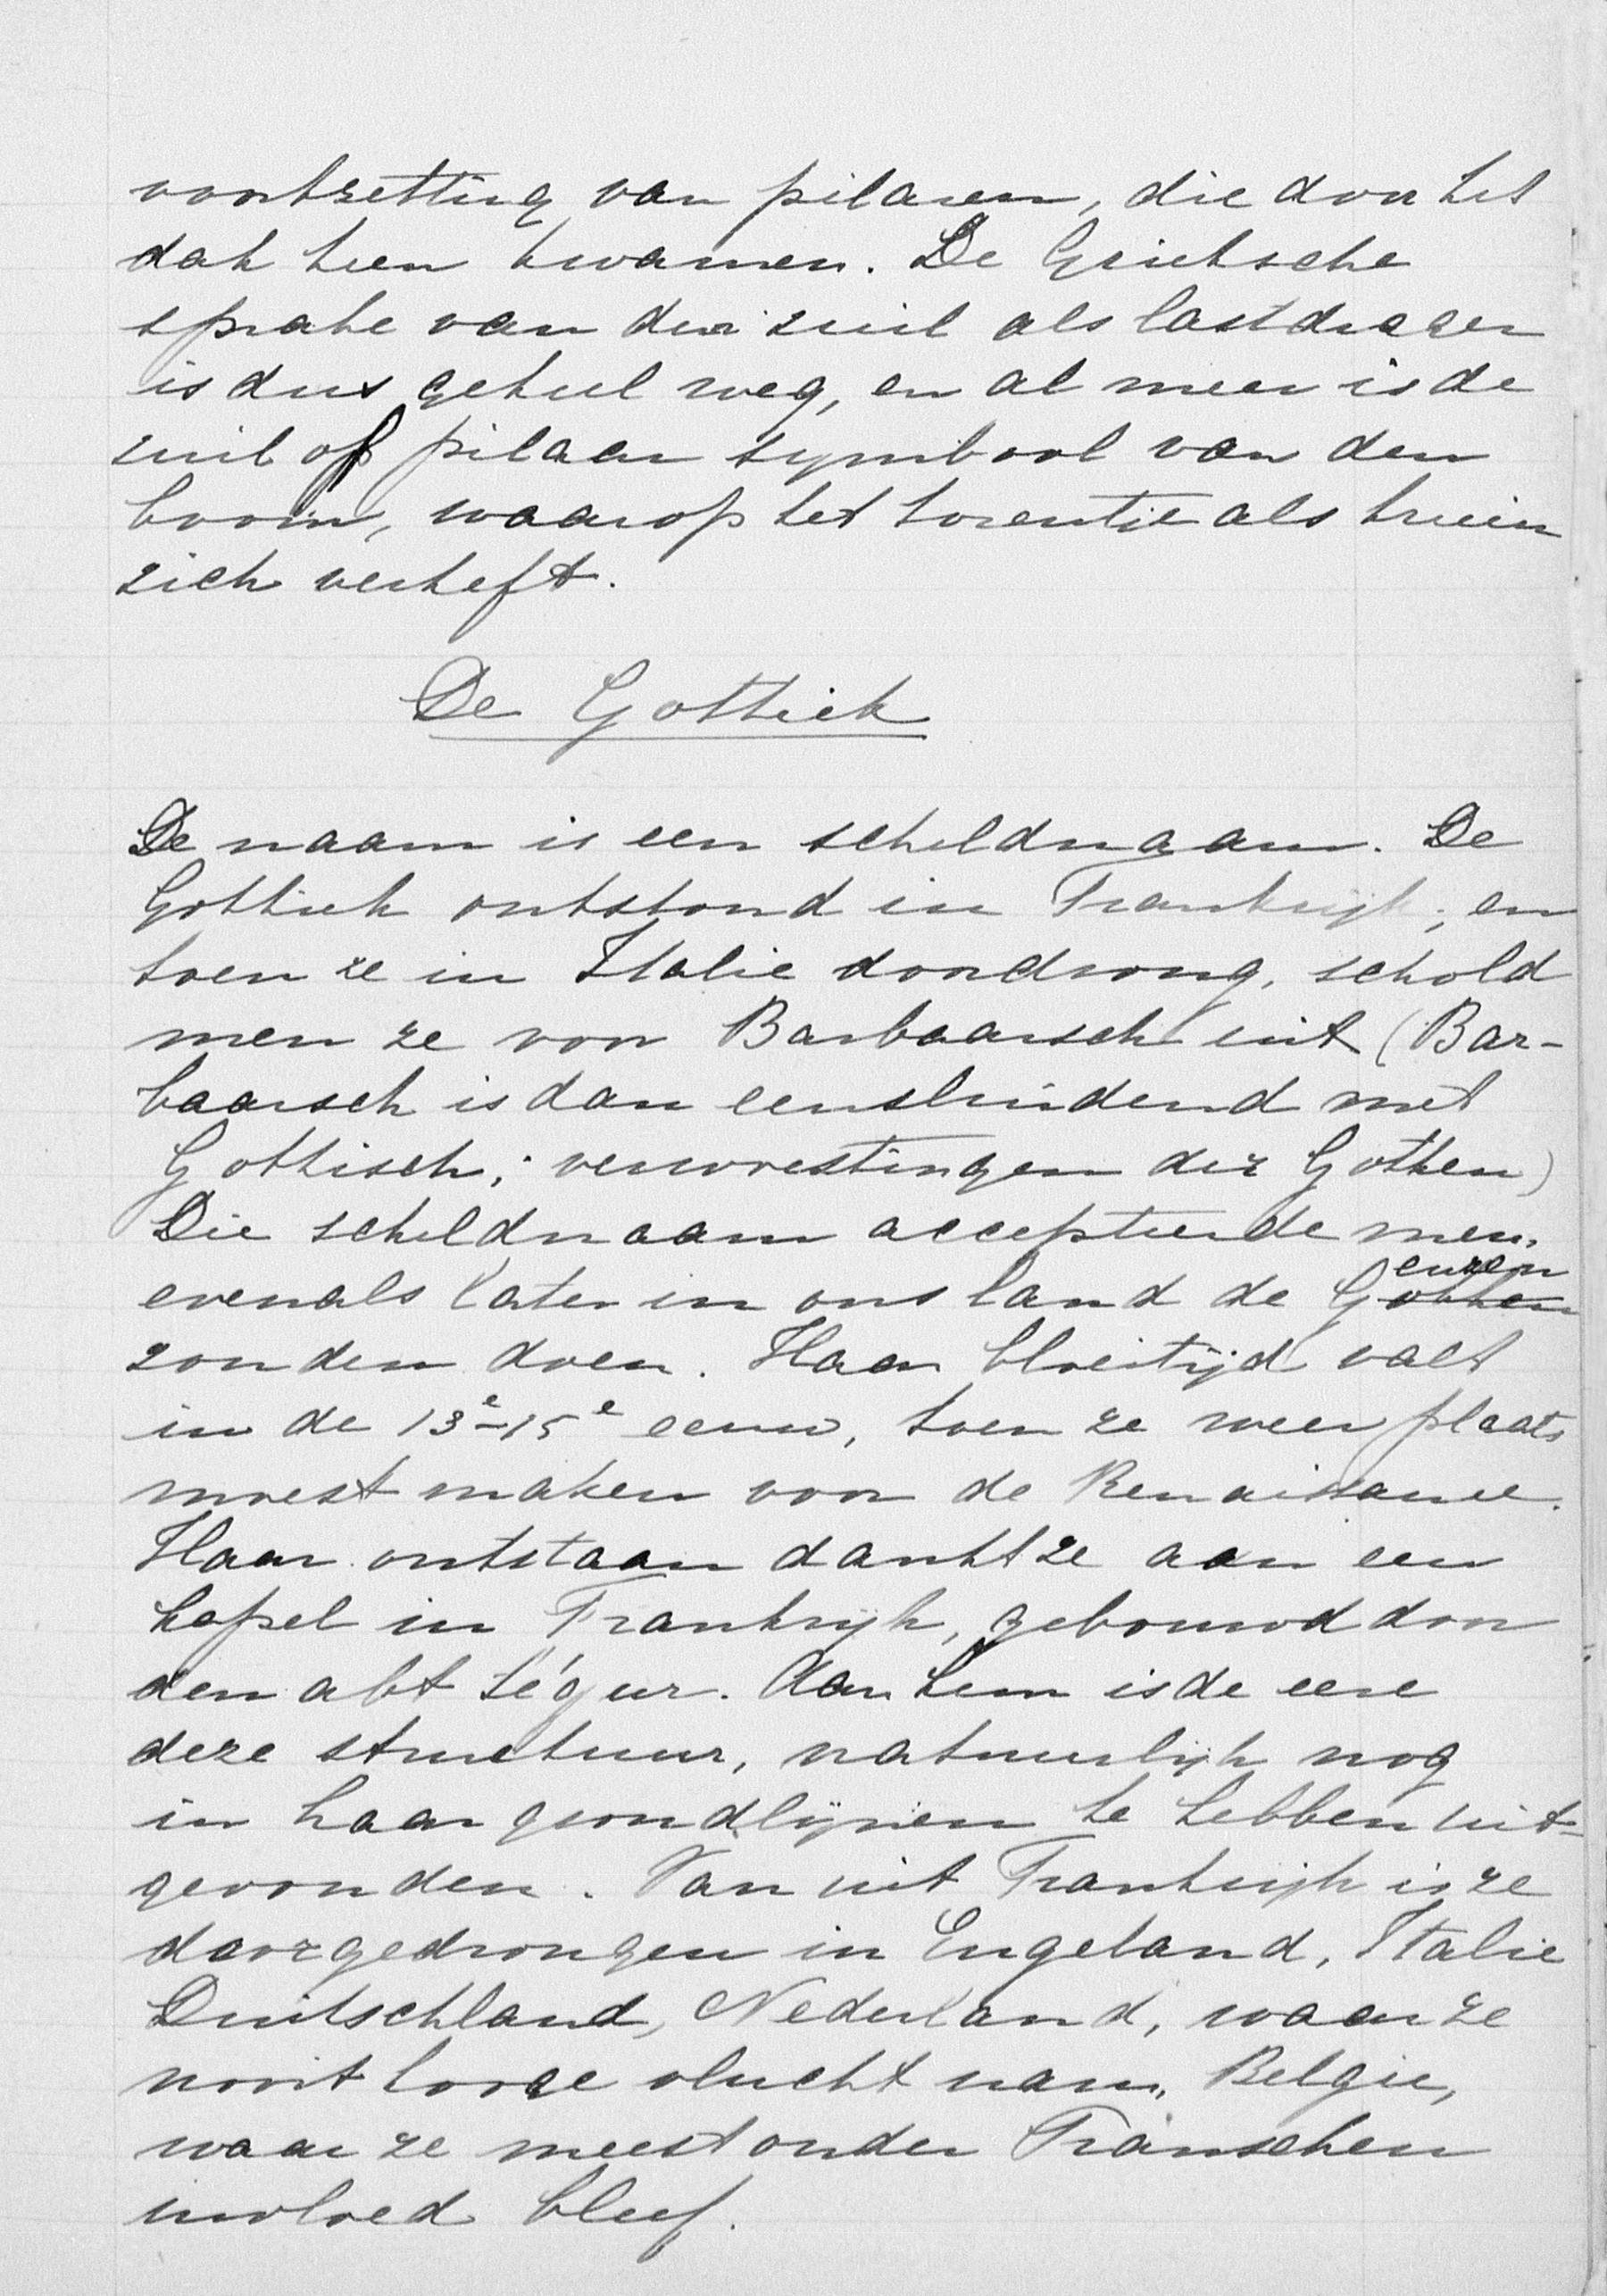 voortzetting van pilaren, die door het
dak heen kwamen. De Grieksche
sprake van den zuil als lastdrager
is dus geheel weg, en al meer is de
zuil of pilaar symbool van den
boom, waarop het torentje als kruin
zich verheft.
De Gothiek
De naam is een scheldnaam. De
Gothiek ontstond in Frankrijk, en
toen ze in Italie doordrong, schold
men ze voor Barbaarsch uit (Bar-
baarsch is dan eensluidend met
Gothisch; verwoestingen der Gothen)
Die scheldnaam accepteerde men,
evenals later in ons land de Geuzen
zouden doen. Haar bloeitijd valt
in de 13e-15e eeuw, toen ze weer plaats
moest maken voor de Renaissance.
Haar ontstaan dankt ze aan een
kapel in Frankrijk, gebouwd door
den abt Ségur. Aan hem is de eere
deze structuur, natuurlijk nog
in haar grondlijnen te hebben uit-
gevonden. Van uit Frankrijk is ze
doorgedrongen in Engeland, Italie
Duitschland, Nederland, waar ze
nooit hooge vlucht nam, Belgie,
waar ze meest onder Franschen
invloed bleef.